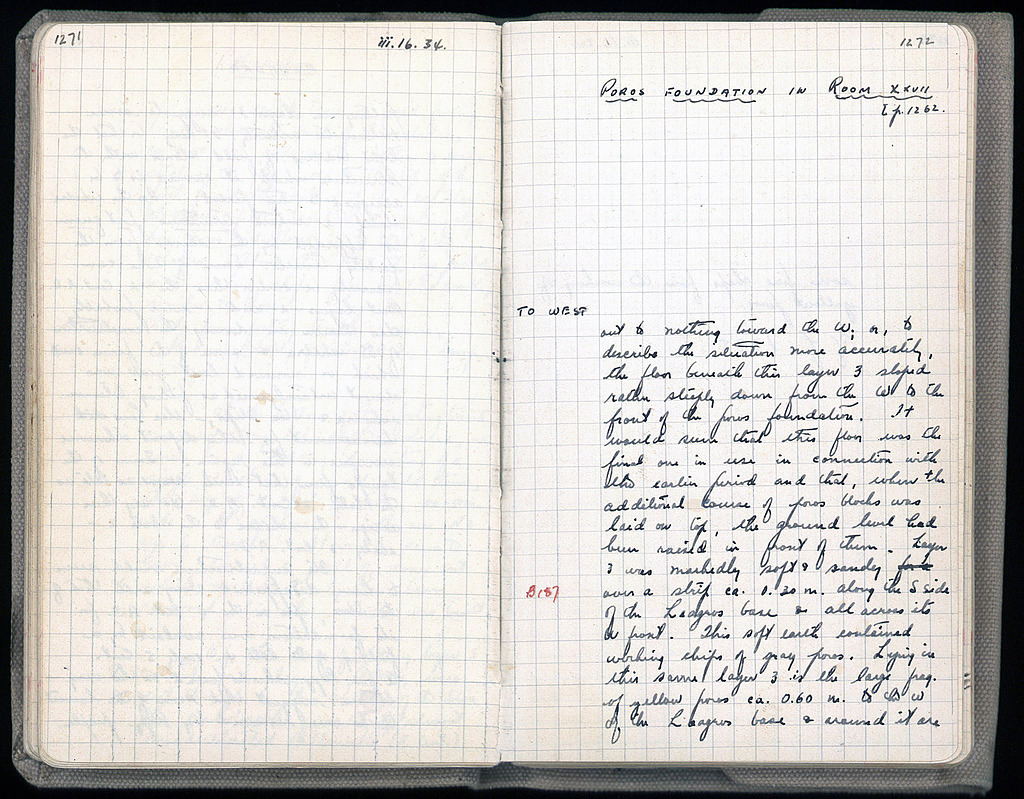 1271
iii.16.34.
1272
POROS FOUNDATION IN ROOM XXVII
[p.1262.
TO WEST
out to nothing toward the W. or, to
describe the situation more accurately,
the floor beneath this layer 3 sloped
rather steeply down from the W to the
front of the poros foundation. It
would seem that this floor was the
final one in use in connection with
the earlier period and that, when the
additional course of poros blocks was
laid on top, the ground level had
been raised in front of them. Layer
3 was markedly soft & sandy
B187
over a strip ca. 0.30 m. along the S side
of the Leagros base & all across its
W front. This soft earth contained
working chips of gray poros. Lying in
this same layer 3 is the large frag.
of yellow poros ca. 0.60 m. to the W
of the Leagros base & around it are